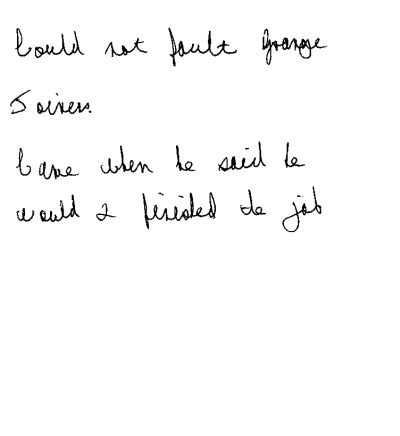 Could not fault Grange
Came when he said he
would & finished the job